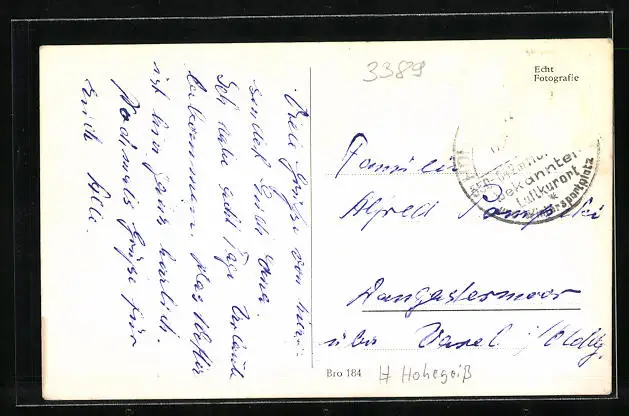 Viele Grüße von hier
sendet Euch Ana.
Ich habe acht Tage Urlaub
bekommen. Das Wetter
ist hier ganz herrlich.
Nochmals Grüße für
Euch Alle.
3389
Echt
Fotografie
bekannter
Luftkurort
Wintersportplatz
Familie
Alfred
Dangastermoor
über Varel i/Oldbg.
Bro 184 # Hohegeiß